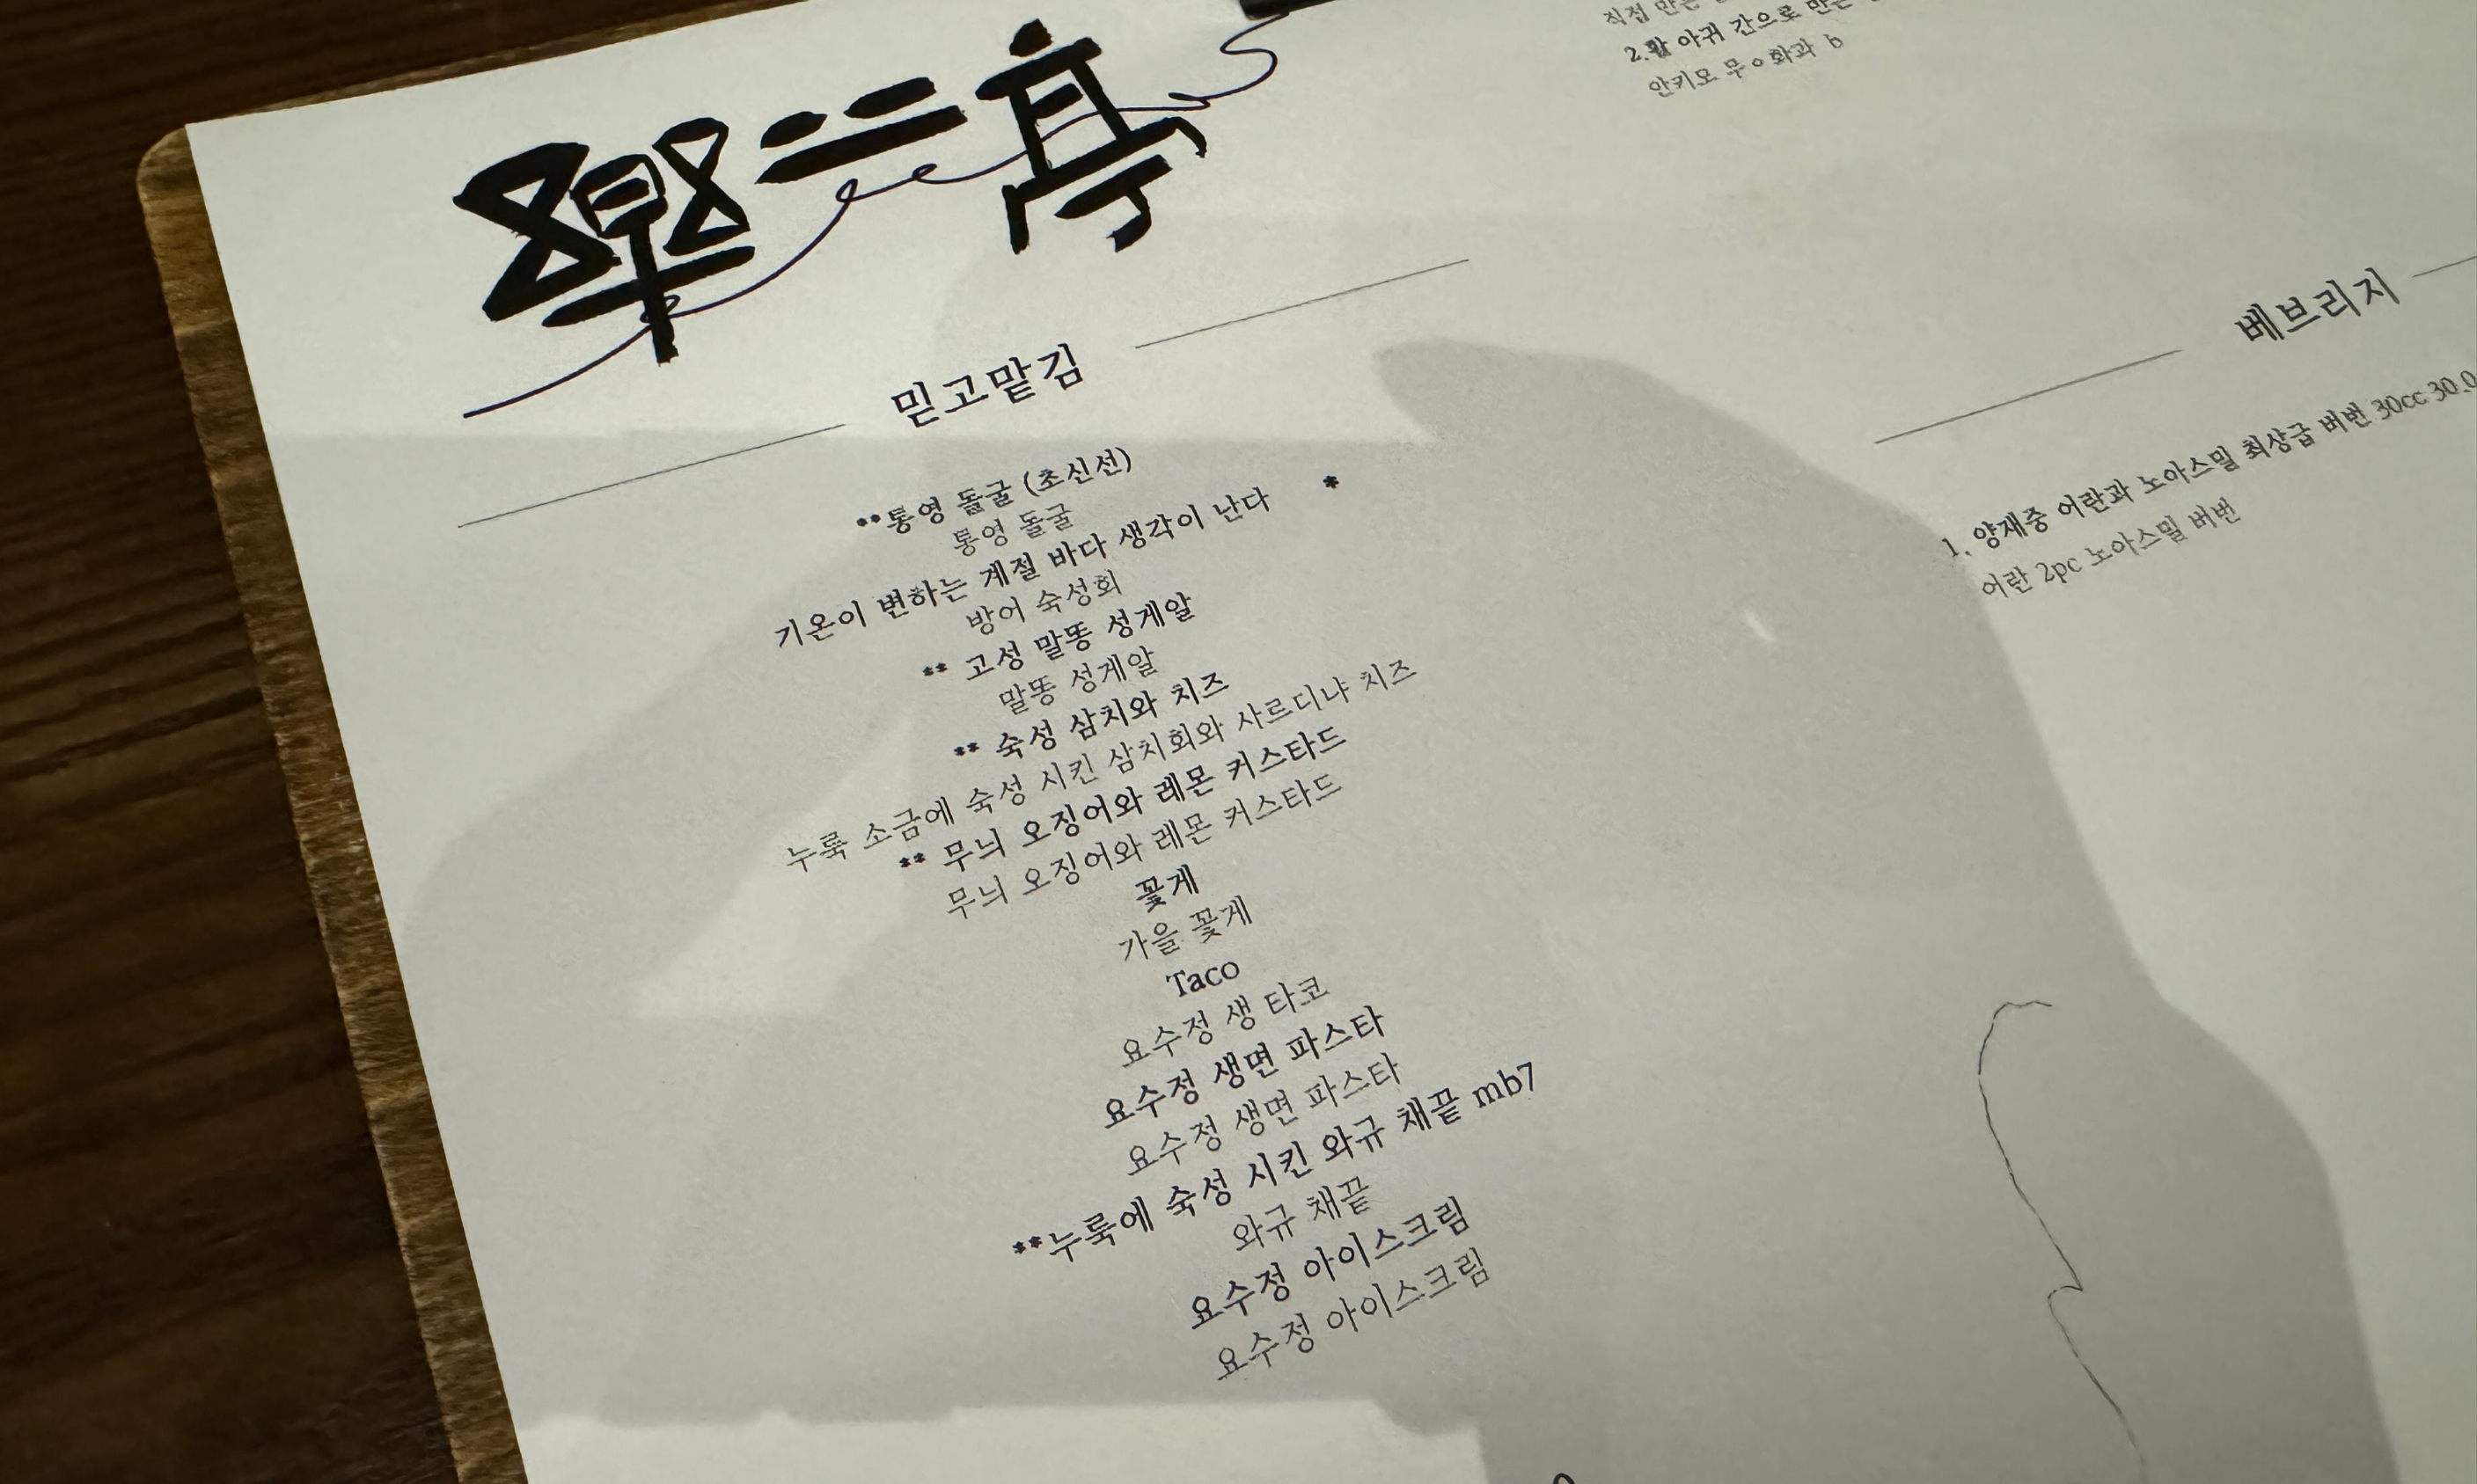 믿고맡김
**통영 돌굴 (초신선)
통영 돌굴
기온이 변하는 계절 바다 생각이 난다 *
방어 숙성회
** 고성 말똥 성게알
말똥 성게알
** 숙성 삼치와 치즈
누룩 소금에 숙성 시킨 삼치회와 사르디냐 치즈
** 무늬 오징어와 레몬 커스타드
무늬 오징어와 레몬 커스타드
꽃게
가을 꽃게
Taco
요수정 생 타코
요수정 생면 파스타
요수정 생면 파스타
**누룩에 숙성 시킨 와규 채끝 mb7
와규 채끝
요수정 아이스크림
요수정 아이스크림
직접 만든
2. 아귀 간으로 만든
안키모 무ㅇ화과 b
베브리지
1. 양재중 어란과 노아스밀 최상급 버번 30cc 30.0
어란 2pc 노아스밀 버번